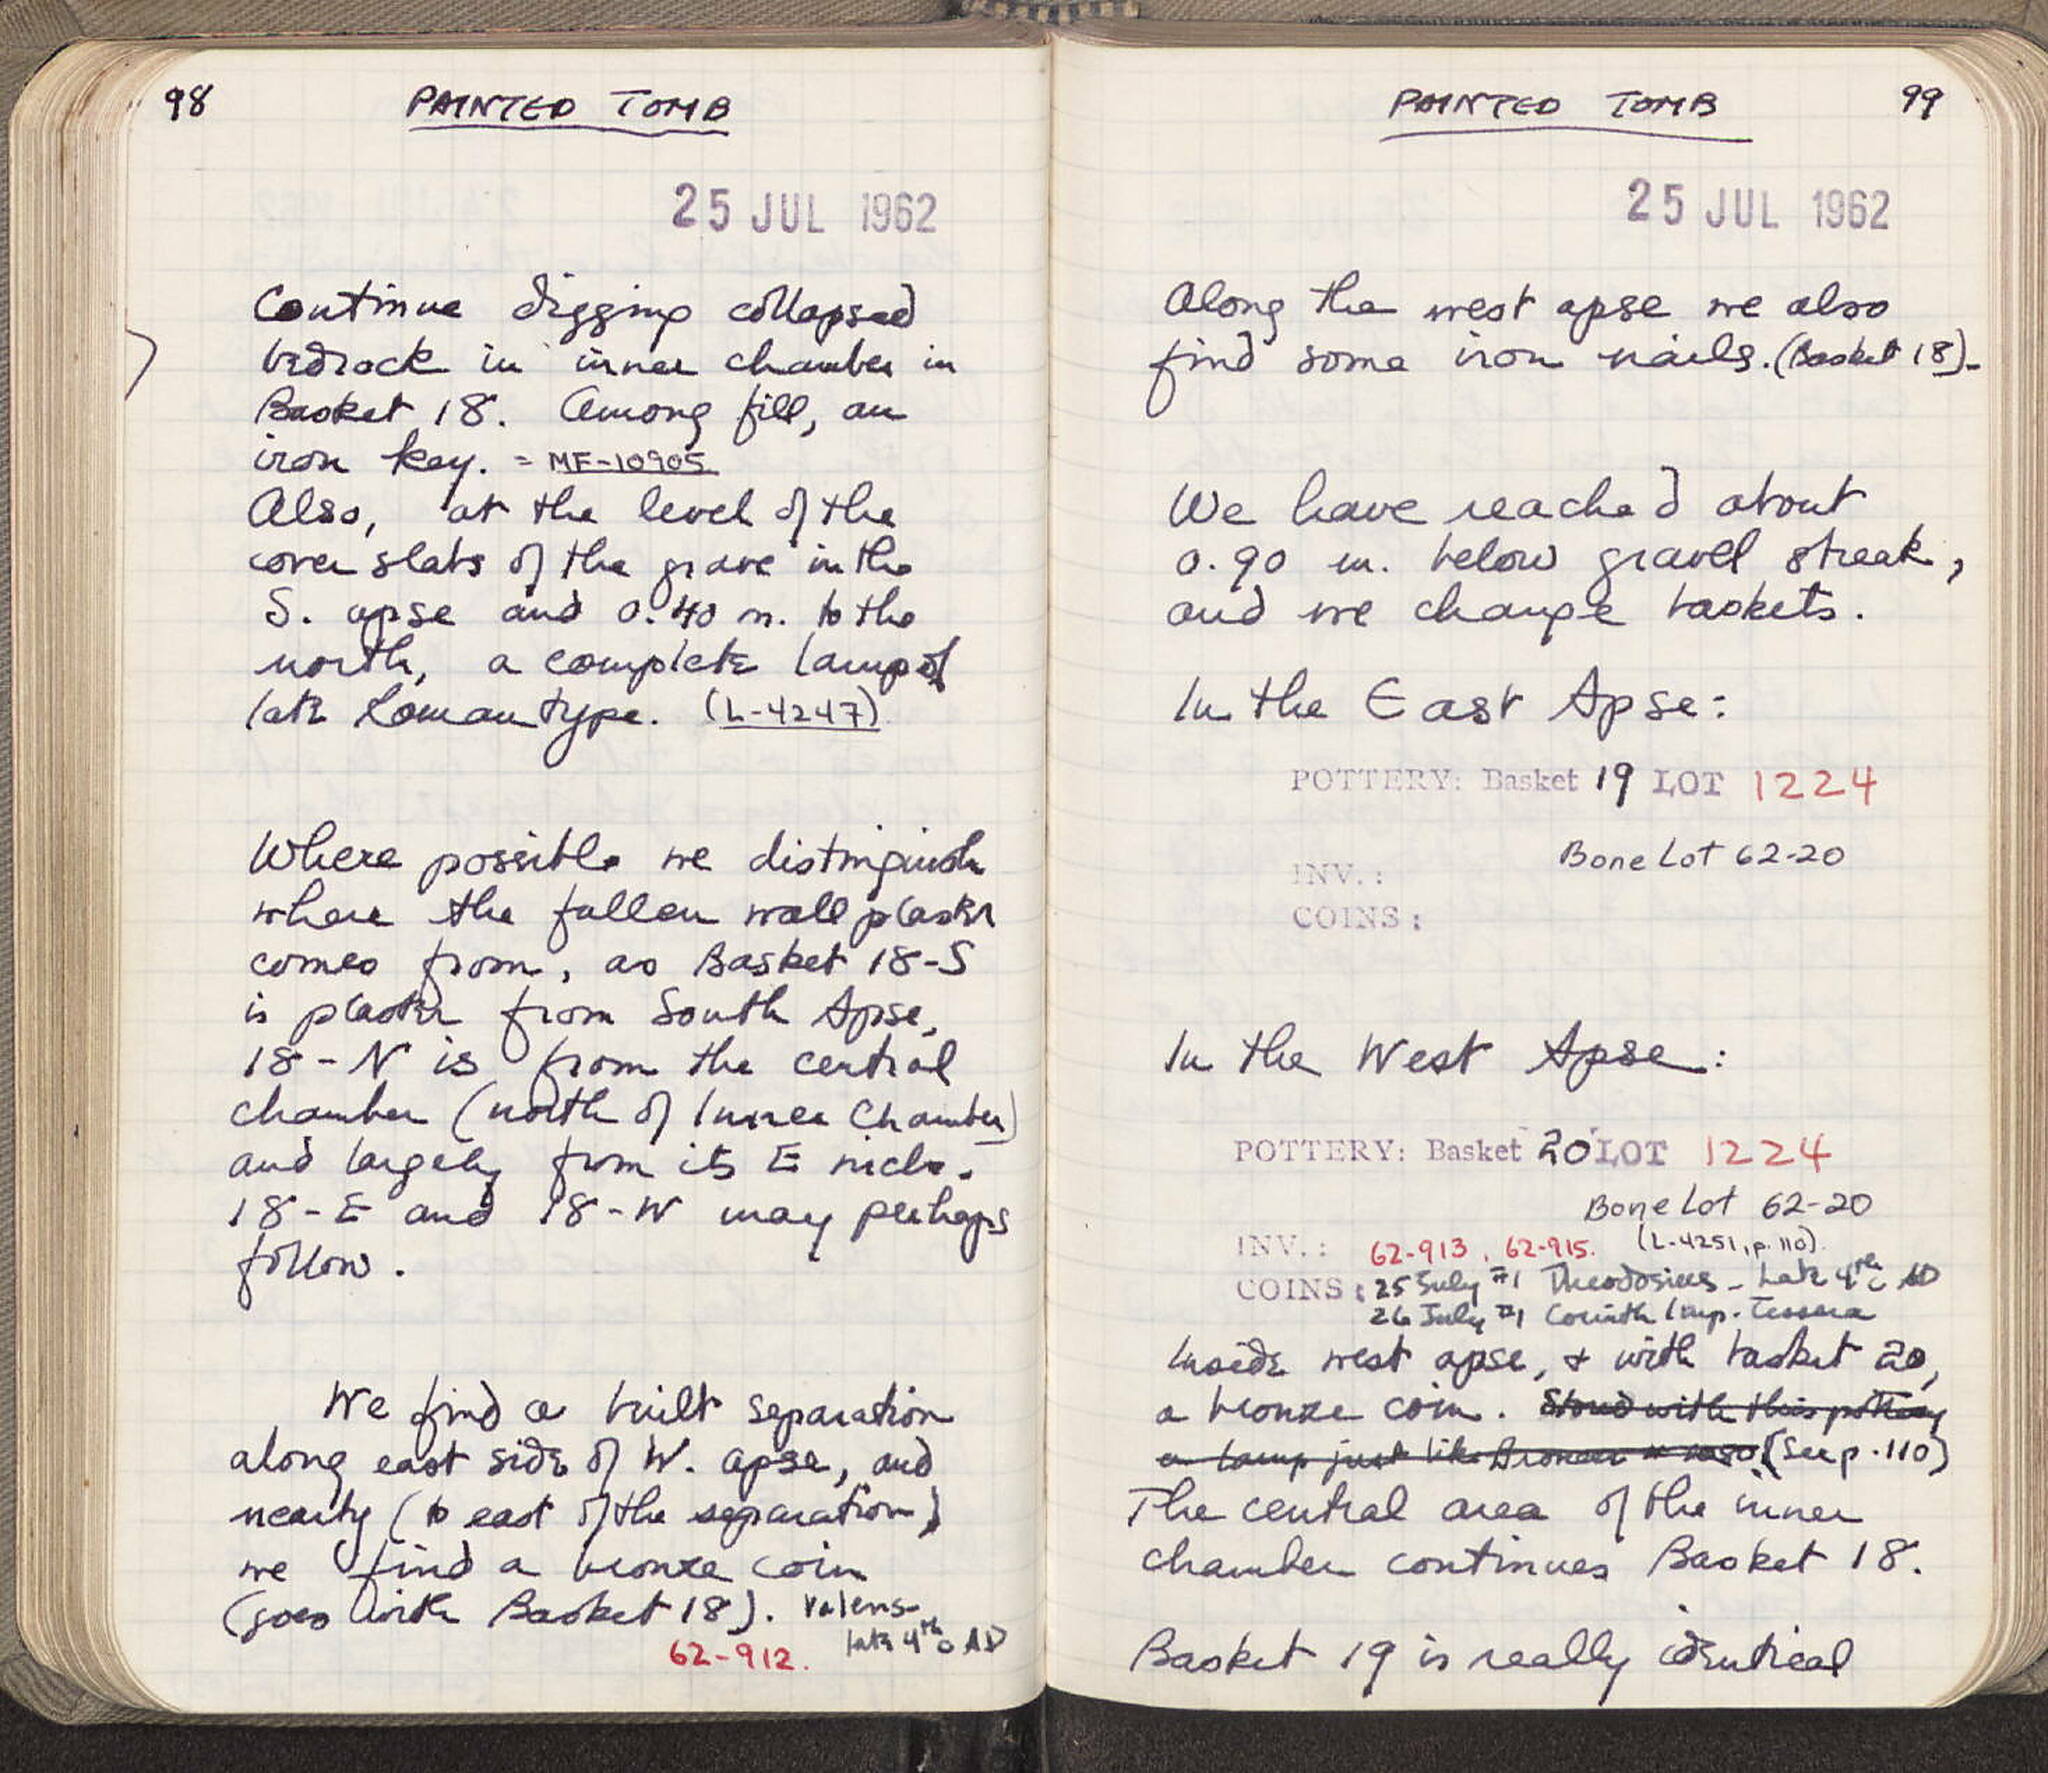 98
PAINTED TOMB
25 JUL 1962
Continue digging collapsed
bedrock in inner chamber in
Basket 18. Among fill, an
iron key. = MF-10905
Also, at the level of the
cover slabs of the grave in the
S. apse and 0.40 m. to the
north, a complete lamp of
late Roman type. (L-4247)
Where possible we distinguish
where the fallen wall plaster
comes from, as Basket 18-S
is plaster from South Apse,
18-N is from the central
chamber (north of Inner Chamber)
and largely from its E niche.
18-E and 18-W may perhaps
follow.
We find a built separation
along east side of W. apse, and
nearby (to east of the separation)
we find a bronze coin
(goes with Basket 18). Valens-
late 4th c AD
62-912.
PAINTED TOMB
99
25 JUL 1962
Along the west apse we also
find some iron nails. (Basket 18)-
We have reached about
0.90 m. below gravel streak,
and we change baskets.
In the East Apse:
POTTERY: Basket 19 LOT 1224
Bone Lot 62-20
INV.:
COINS:
In the West Apse:
POTTERY: Basket 20 LOT 1224
Bone Lot 62-20
INV.: 62-913, 62-915. (L-4251, p. 110).
COINS: 25 July #1 Theodosius - Late 4th c AD
26 July #1 Corinth Imp. Tessera
Inside west apse, + with basket 20,
a bronze coin. Stored with this pottery
a lamp just like Broneer # (See p. 110)
The central area of the inner
chamber continues Basket 18.
Basket 19 is really identical